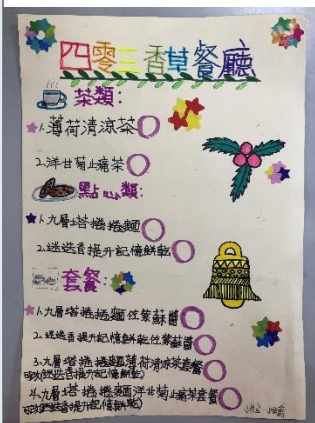 四零三香草餐廳
茶類:
1.薄荷清涼茶
2.洋甘菊止痛茶
點心類:
1.九層塔捲捲麵
2.迷迭香提升記憶餅乾
套餐:
1.九層塔捲捲麵佐紫蘇醬
2.迷迭香提升記憶餅乾佐紫蘇醬
3.九層塔捲捲麵薄荷清涼茶套餐
可改(迷迭香提升記憶餅乾)
4.九層塔捲捲麵洋甘菊止痛茶套餐
可改(迷迭香提升記憶餅乾)